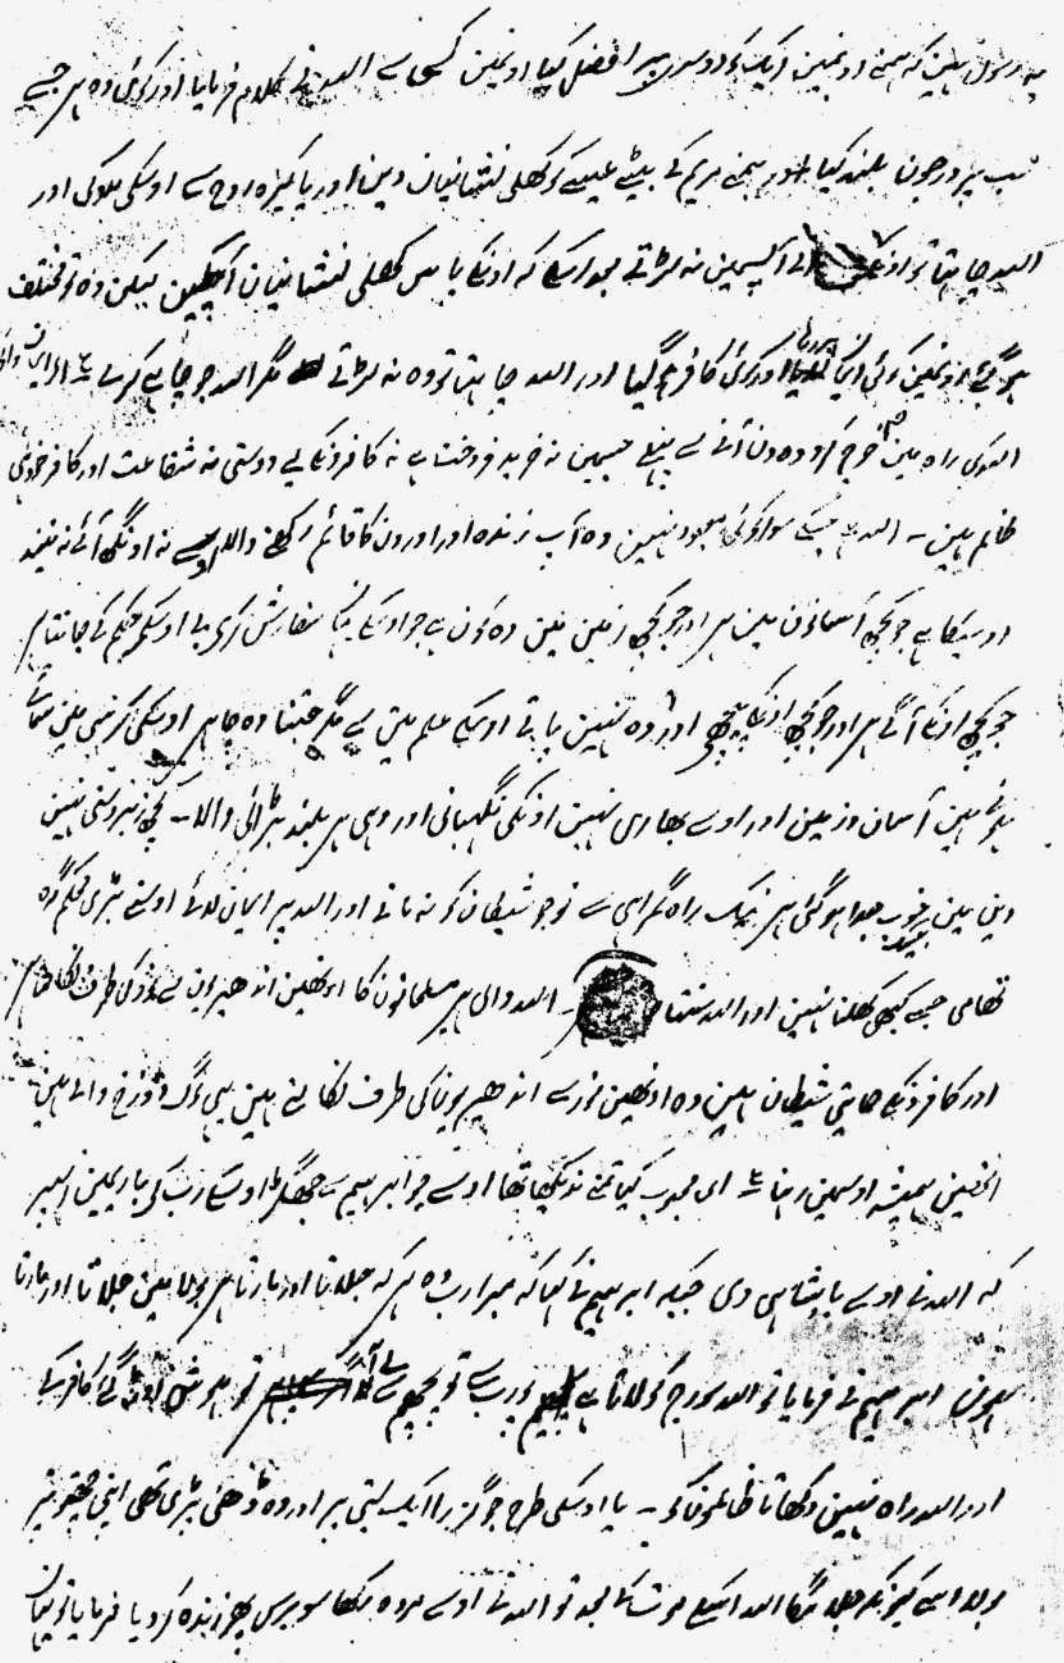 یہ رسول ہین کہ ہمنے اونمین ایک کو دوسرے پر افضل کیا اونمین کسی سے اللہ نے کلام فرمایا اور کوئی وہ ہر جسے
سب پر درجون بلند کیا اور ہمنے مریم کے بیٹے عیسے کو کھلی نشانیان دین اور پاکیزہ روح سے اوسکی مدد کی اور
اللہ چاہتا تو اونکے بعد والے آپسمین نہ لڑتے بعد اسکے کہ اونکے پاس کھلی نشانیان آچکین لیکن وہ تو مختلف
ہو گئے اونمین کوئی ایمان پر رہا اور کوئی کافر ہو گیا اور اللہ چاہتا تو وہ نہ لڑتے مگر اللہ جو چاہے کرے ؁ اے ایمان والو
اللہ کی راہ مین خرچ کرو وہ دن آنے سے پہلے جسمین نہ خرید فروخت ہے نہ کافرونکے لیے دوستی نہ شفاعت اور کافر خود ہی
ظالم ہین ۔ اللہ ہے جسکے سوا کوئی معبود نہین وہ آپ زندہ اور اورون کا قائم رکھنے والا اوسے نہ اونگھ آئے نہ نیند
اوسیکا ہے جو کچھ آسمانون مین ہر اور جو کچھ زمین مین وہ کون ہے جو اوسکے یہان سفارش کرے بے اوسکے حکم کے جانتا ہر
جو کچھ اونکے آگے ہر اور جو کچھ اونکے پیچھے اور وہ نہین پاتے اوسکے علم مین سے مگر جتنا وہ چاہے اوسکی کرسی مین سمائے
ہوئے ہین آسمان و زمین اور اوسے بھاری نہین اونکی نگہبانی اور وہی ہر بلند بڑائی والا ۔ کچھ زبردستی نہین
دین مین بیشک خوب جدا ہو گئی ہر نیک راہ گمراہی سے تو جو شیطان کو نہ مانے اور اللہ پر ایمان لائے اوسنے بڑی محکم گرہ
تھامی جسے کبھی کھلنا نہین اور اللہ سنتا ۔ اللہ والی ہر مسلمانون کا اونھین اندھیریون سے نور کی طرف نکالتا ہر
اور کافرونکے حمایتی شیطان ہین وہ اونھین نور سے اندھیریونکی طرف نکالتے ہین یہی لوگ دوزخ والے ہین
انھین ہمیشہ اوسمین رہنا ؁ اے محبوب کیا تمنے ندیکھا تھا اوسے جو ابراہیم سے جھگڑا اوسکے رب کے بارہمین اسپر
کہ اللہ نے اوسے بادشاہی دی جبکہ ابراہیم نے کہا کہ میرا رب وہ ہر کہ جلاتا اور مارتا ہر بولا مین جلاتا اور مارتا
ہون ابراہیم نے فرمایا تو اللہ سورج کو لاتا ہے پورب سے تو پچھم سے لے آ تو ہوش اوڑ گئے کافر کے
اور اللہ راہ نہین دکھاتا ظالمونکو ۔ یا اوسکی طرح جو گزرا ایک بستی پر اور وہ ڈھئی پڑی تھی اپنی چھتونپر
بولا اسے کیونکر جلائیگا اللہ اسکی موت کے بعد تو اللہ نے اوسے مردہ رکھا سو برس پھر زندہ کر دیا فرمایا تو یہان